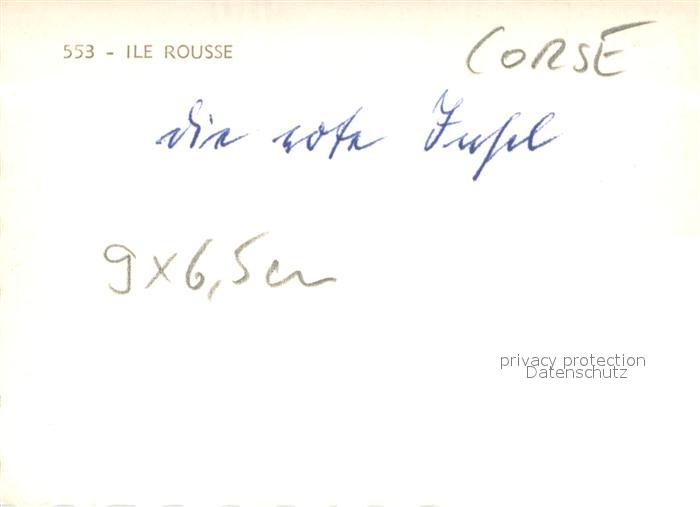 553 - ILE ROUSSE
CORSE
die rote Insel
9x6,5cm
privacy protection
Datenschutz